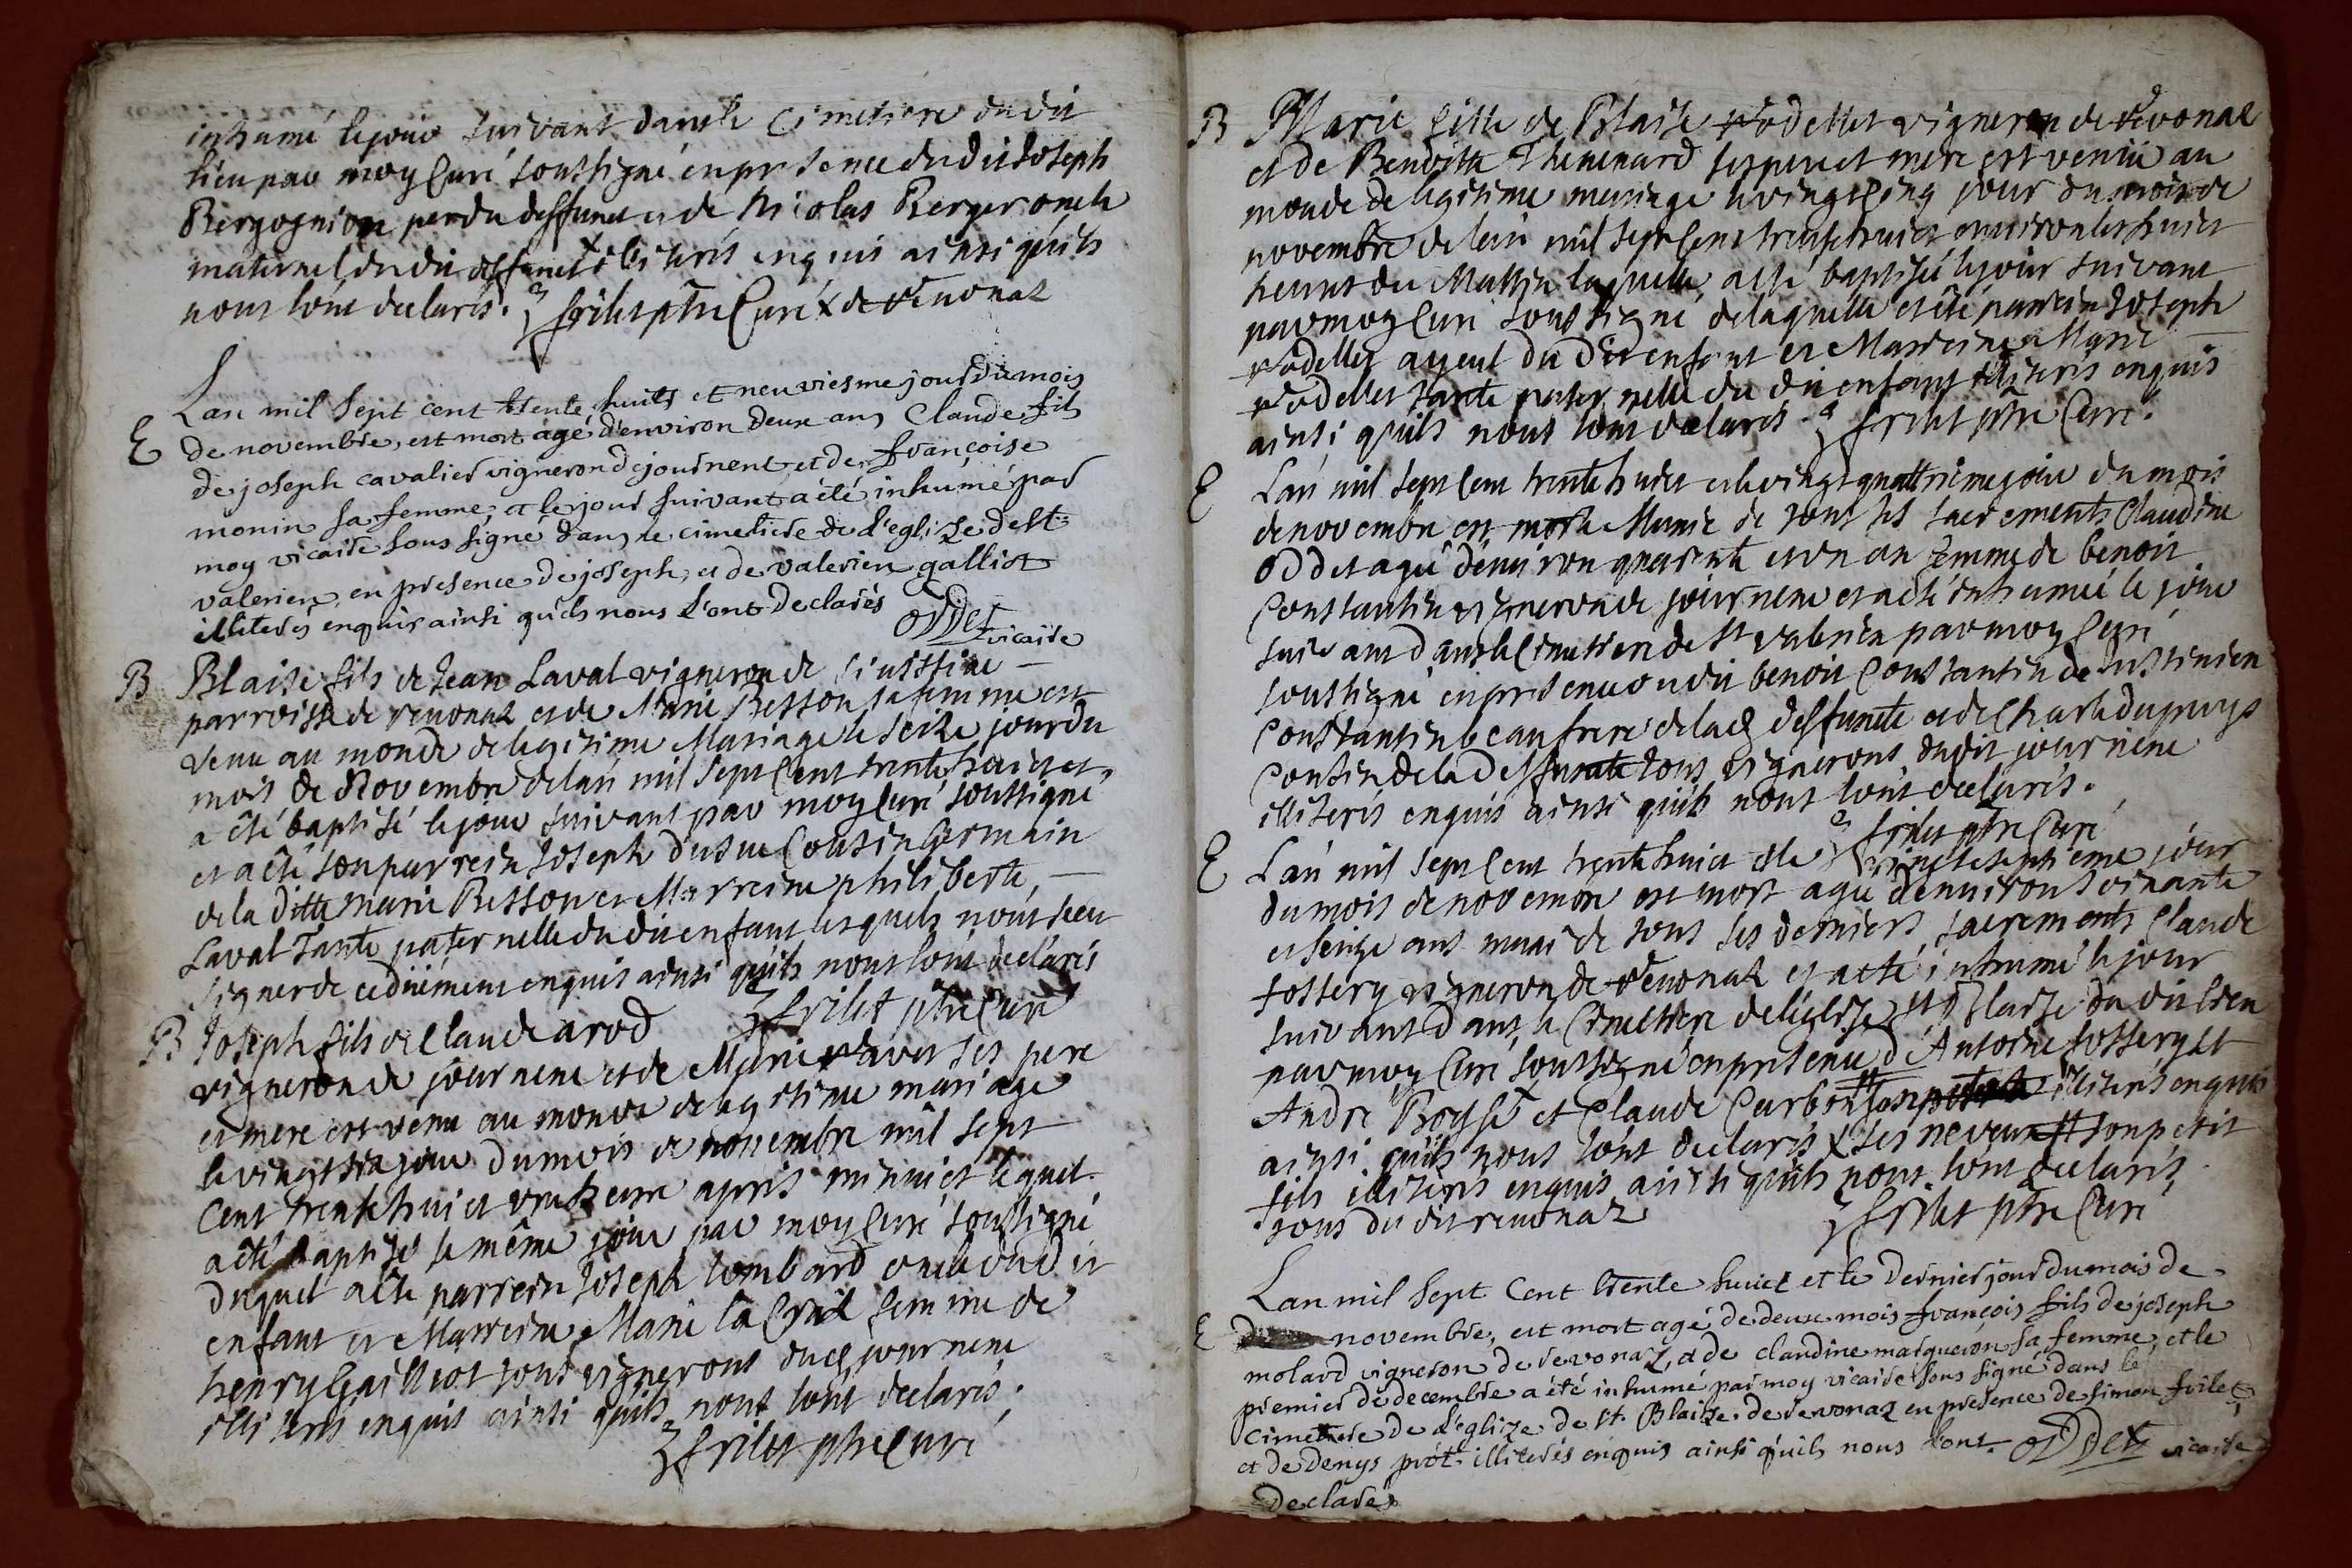 inhumé le jour suivant dans le Cimetiere du dit
lieu par moy Curé soussigné en presence du dit Joseph
Bergognion pere du deffunct et de Nicolas Berger oncle
maternel du dit deffunct illiterés enquis ainsi quils
nous l'ont declarés. frilet ptre Curé de revonas
Lan mil sept cent trente huits et neuviesme jour du mois
E de novembre, est mort agé d'environ deux ans Claude fils
de joseph cavalier vigneron de journent, et de françoise
monin sa femme, et le jour suivant a été inhumé par
moy vicaire sous signé dans le cimetiere de l'eglize de st
valerien, en presence de joseph, et de valerien galliot
illiterés enquis ainsi qu'ils nous l'ont declarés
oddet vicaire
B Blaise fils de Jean Laval vigneron de
parroisse de revonas et de Marie Besson sa femme est
venu au monde de legitime Mariage le seize jour du
mois de Novembre de lan mil sept Cent trente huict et
a été baptisé le jour suivant par moy Curé soussigné
et a été son parrein Joseph dusuc Cousin Germain
de la ditte marie Besson et Marreine philiberte
Laval Tante paternelle du dit enfant lesquels n'ont sceu
signer de ce düement enquis ainsi quils nous l'ont declarés
frilet ptre Curé
B Joseph fils de Claude arod
vigneron de journent et de Marie ravet ses pere
et mere est venu au monde de legitime mariage
le vingt six jour du mois de novembre mil sept
Cent trente huict une heure apres minuict lequel
a été baptisé le même jour par moy Curé soussigné
duquel a été parrein Joseph Lombard oncle dudit
enfant et Marreine Marie la Croix femme de
henry Gailliot tous vignerons dud journent
illiterés enquis ainsi quils nous l'ont declarés.
frilet ptre Curé
B Marie fille de Blaise rodellet vigneron de revonas
et de Benoitte Thevenard ses pere et mere est venüe au
monde de legitime mariage le vingt Cinq jour du mois de
novembre de lan mil sept Cent trente huict environ les huict
heures du Mattin laquelle a été baptisée le jour suivant
par moy Curé soussigné de laquelle a été parrein Joseph
rodellet ayeul du dit enfant et Marreine Marie
rodellet tante paternelle du dit enfant illiterés enquis
ainsi quils nous l'ont declarés. frilet ptre Curé.
E Lan mil sept Cent trente huict et le vingt quattrieme jour du mois
de novembre est morte Munie de tous ses sacrements Claudine
oddet agée d'environ quarente et un an femme de benoit
Constantin vigneron de journent et a été inhumée le jour
suivant dans le Cimetiere de st valerien par moy Curé
soussigné en presence du dit benoit Constantin de
Constantin beau frere de lad deffuncte et de Charle dupuys
Cousin de la deffuncte tous vignerons du dit journent
illiterés enquis ainsi quils nous l'ont declarés.
frilet ptre Curé
E Lan mil sept Cent trente huict et le vingt septieme jour
du mois de novembre est mort agé d'environ soixante
et seize ans muni de tous ses derniers sacrements Claude
fossery vigneron de revonas et a été inhumé le jour
suivant dans le Cimetiere de l'eglise st Blaise du dit lieu
par moy Curé soussigné en presence d'Antoine fossery et
André Boysset et Claude Curbon illiterés enquis
ainsi quils nous l'ont declarés X ses neveux # son petit
fils illiterés enquis ainsi quils nous l'ont declarés
tous du dit revonas frilet ptre Curé
Lan mil sept Cent trente huict et le dernier jour du mois de
E novembre, est mort agé de deux mois françois fils de joseph
molard vigneron de revonaz, et de claudine marqueron sa femme, et le
premier de decembre a été inhumé par moy vicaire sous signé dans le
cimetiere de l'eglize de st. Blaize de revonaz en presence de simon frilet,
et de denys prot. illiterés enquis ainsi qu'ils nous l'ont oddet vicaire
declarés